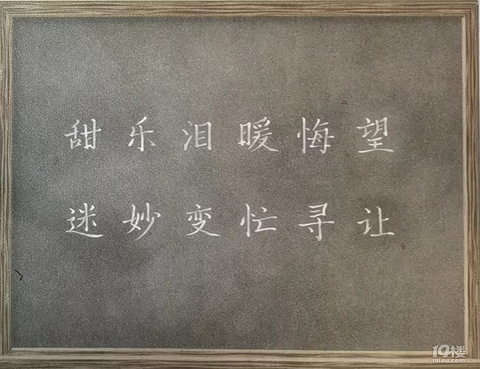 甜乐泪暖悔望
迷妙变忙寻让
19楼
19lou.com